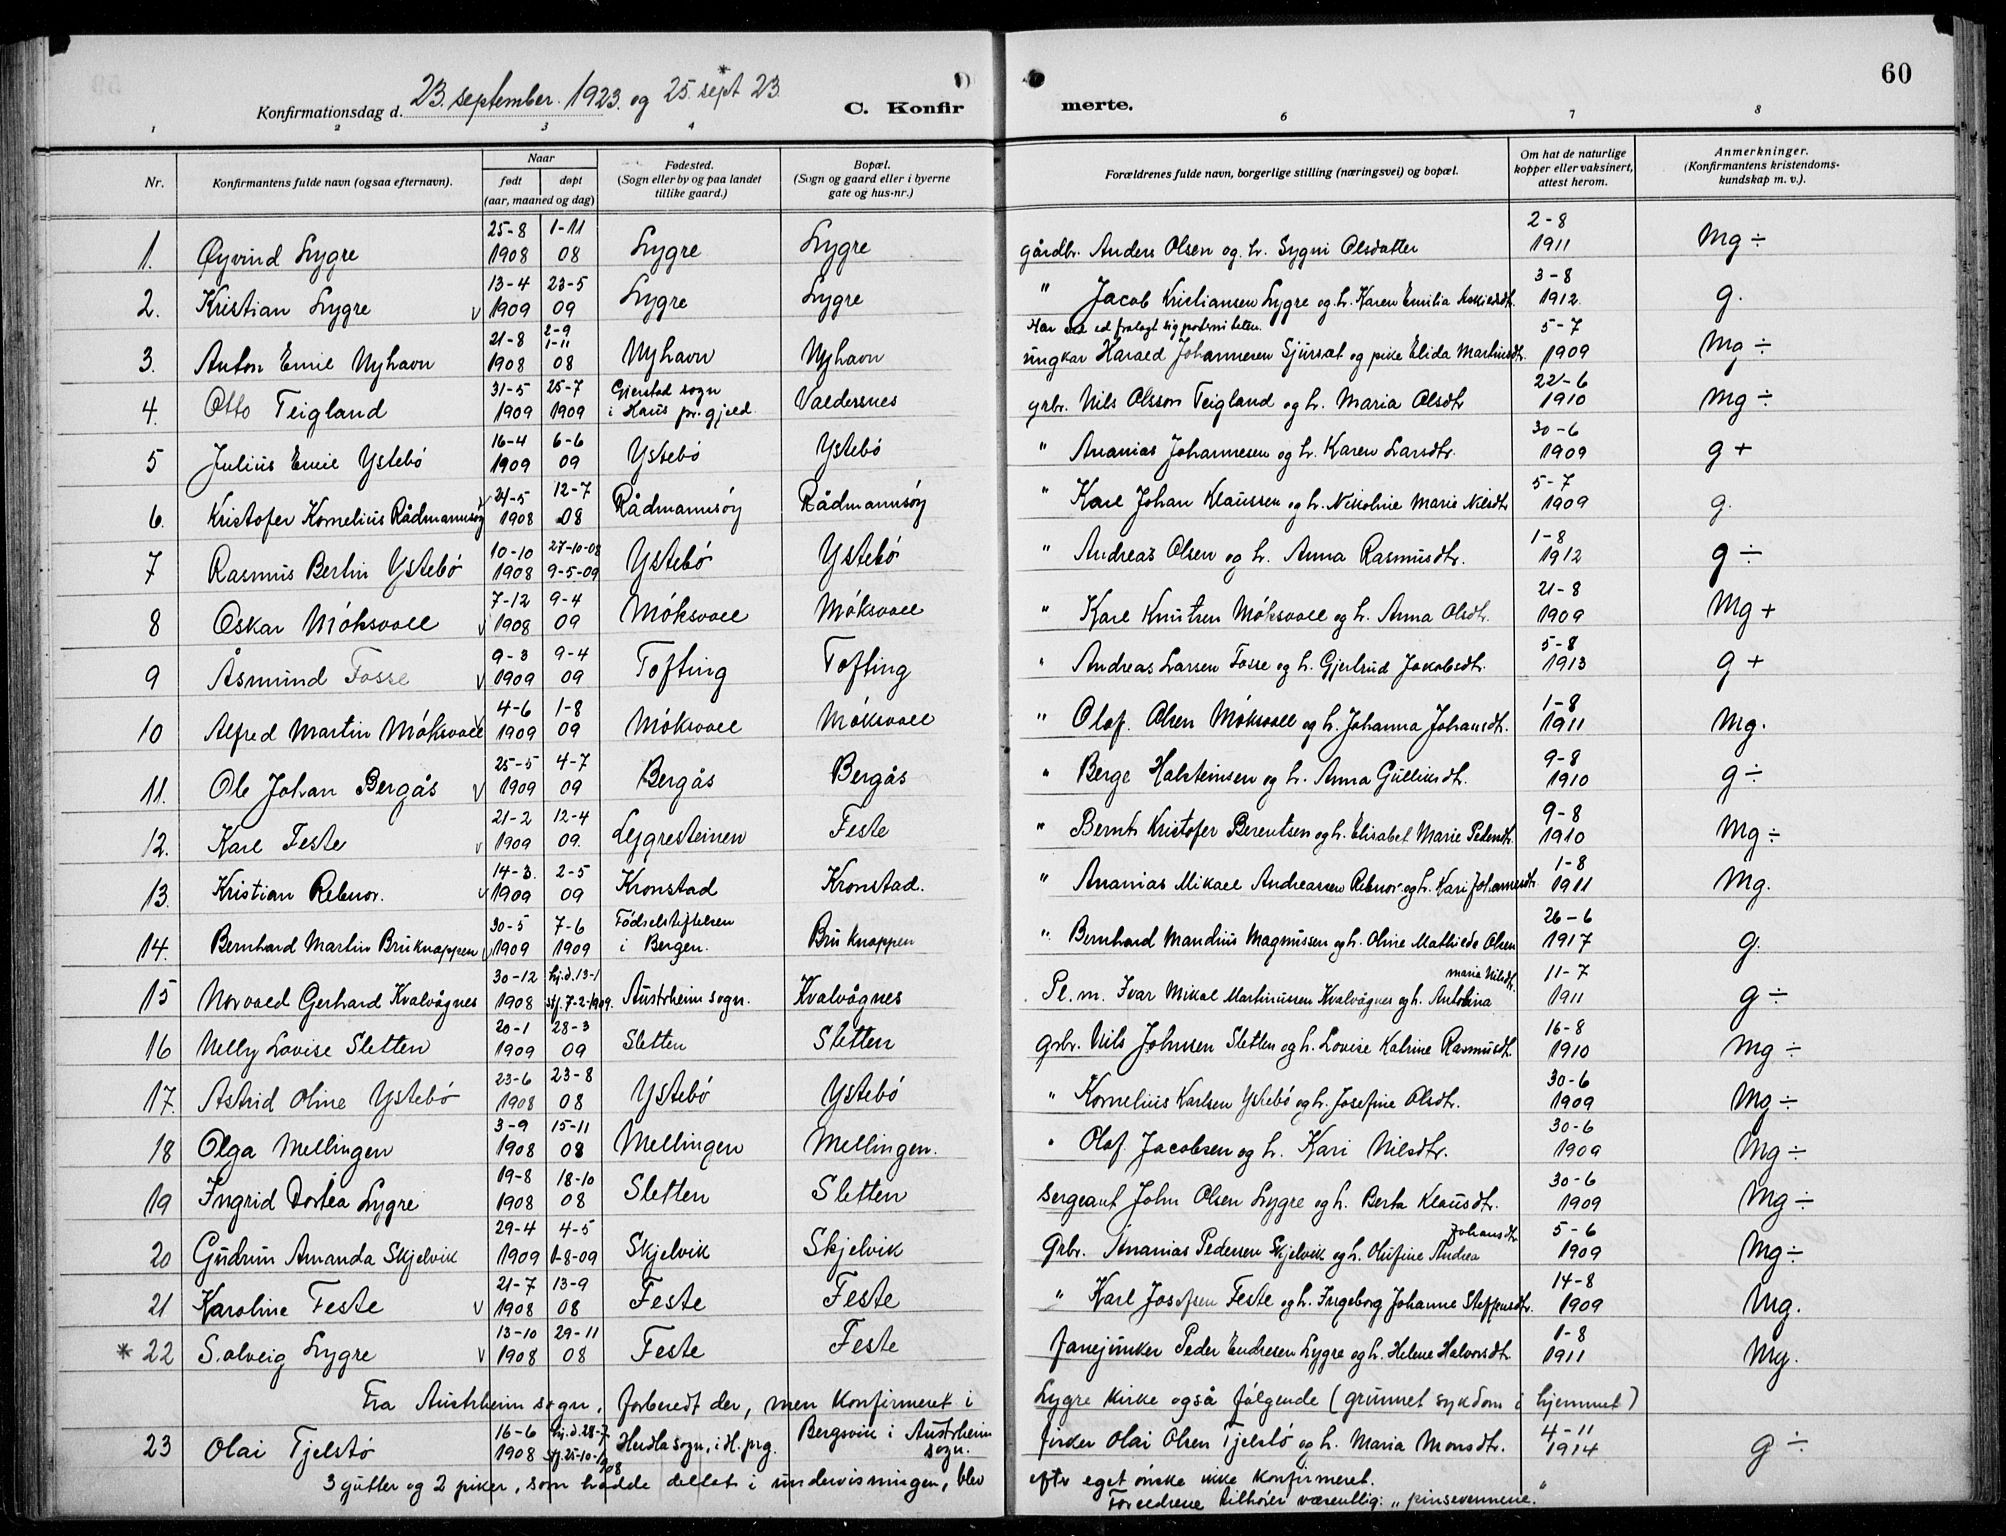 60
Konfirmationsdag d. 23. september 1923. og 25. sept 23. *
C. Konfirmerte.
1 2 3 4 6 7 8
Nr.
Konfirmantens fulde navn (ogsaa efternavn).
Naar
født døpt
(aar, maaned og dag)
Fødested.
(Sogn eller by og paa landet
tillike gaard.)
Bopæl.
(Sogn og gaard eller i byerne
gate og hus-nr.)
Forældrenes fulde navn, borgerlige stilling (næringsvei) og bopæl.
Om hat de naturlige
kopper eller vaksinert,
attest herom.
Anmerkninger.
(Konfirmantens kristendoms-
kundskap m. v.).
1. Øyvind Lygre 25-8 1908 1-11 08 Lygre Lygre gårdbr. Anders Olsen og h. Sygni Olsdatter 2-8 1911 Mg ÷
2. Kristian Lygre v 13-4 1909 23-5 09 Lygre Lygre " Jacob Kristiansen Lygre og h. Karen Emilia 3-8 1912. g.
3. Anton Emil Nyhavn 21-8 1908 2-9 1-11 08 Nyhavn Nyhavn Har ved ed fralagt sig paterniteten. ungkar Harald Johannesen Sjursæt og pike Elida Martinsdtr. 5-7 1909 Mg ÷
4. Otto Teigland 31-5 1909 25-7 1909 Gjerstad sogn i Haus pr.gjeld. Valdersnes grbr. Nils Olsson Teigland og h. Maria Olsdtr 22-6 1910 Mg ÷
5 Julius Emil Ystebö 16-4 1909 6-6 09 Ystebö Ystebö " Ananias Johannesen og h. Karen Larsdtr. 30-6 1909 g +
6. Kristofer Kornelius Rådmannsöy v 24-5 1908 12-7 08 Rådmannsöy Rådmannsöy " Karl Johan Klaussen og h. Nikoline Marie Nilsdtr 5-7 1909 g.
7 Rasmus Bertin Ystebö 10-10 1908 27-10-08 9-5-09 Ystebö Ystebö " Andreas Olsen og h. Anna Rasmusdtr. 1-8 1912 g ÷
8 Oskar Möksvoll v 7-12 1908 9-4 09 Möksvoll Möksvoll " Karl Knutsen Möksvoll og h. Anna Olsdtr. 21-8 1909 Mg +
9 Åsmund Fosse v 9-3 1909 9-4 09 Tofting Tofting " Andreas Larsen Fosse og h. Gjertrud Jakobsdtr. 5-8 1913 g +
10 Alfred Martin Möksvoll v 4-6 1909 1-8 09 Möksvoll Möksvoll " Olaf Olsen Möksvoll og h. Johanna Johansdtr. 1-8 1911 Mg.
11. Ole Johan Bergås v 25-5 1909 4-7 09 Bergås Bergås " Berge Halsteinsen og h. Anna Gulliksdtr. 9-8 1910 g ÷
12. Karl Feste v 21-2 1909 12-4 09. Lygresteinen Feste " Bernt Kristofer Berentsen og h. Elisabet Marie Pedersdtr 9-8 1910 Mg ÷
13. Kristian Rebnor. v 14-3. 1909 2-5 09 Kronstad Kronstad. " Ananias Mikael Andreassen Rebnor og h. Kari Johannesdtr. 1-8 1911 Mg.
14. Bernhard Martin Bruknappen v 30-5 1909 7-6 1909 Födselstiftelsen i Bergen. Bruknappen " Bernhard Mandius Magnussen og h. Oline Mathilde Olsen 26-6 1917 g.
15 Norvald Gerhard Kvalvågnes 30-12 1908 hj.d. 13-1 stf. 7-2-1909. Austrheim sogn. Kvalvågnes Pl.m. Ivar Mikal Martinussen Kvalvågnes og h. Antolina maria Nilsdtr. 11-7 1911 g ÷
16 Nelly Lovise Sletten 20-1 1909 28-3 09 Sletten Sletten grbr. Nils Johnsen Sletten og h. Lovise Katrine Rasmusdtr. 16-8 1910 Mg ÷
17. Astrid Oline Ystebö 23-6 1908 23-8 08 Ystebö Ystebö " Kornelius Karlsen Ystebö og h. Josefine Olsdtr. 30-6 1909 Mg ÷
18 Olga Mellingen 3-9 1908 15-11 08 Mellingen Mellingen. " Olaf Jacobsen og h. Kari Nilsdtr. 30-6 1909 Mg ÷
19 Ingrid Dortea Lygre 19-8 1908 18-10 08 Sletten Sletten Sergeant John Olsen Lygre og h. Berta Klausdtr. 30-6 1909 Mg ÷
20 Gudrun Amanda Skjelvik 29-4 1909 4-5 1-8-09 Skjelvik Skjelvik Grbr. Ananias Pedersen Skjelvik og h. Olufine Andrea Johansdtr 5-6 1909 Mg ÷
21 Karoline Feste v 21-7 1908 13-9 08 Feste Feste " Karl Josefsen Feste og h. Ingeborg Johanne Steffensdtr. 14-8 1909 Mg.
* 22 Solveig Lygre v 13-10 1908 29-11 08 Feste Feste fanejunker Peder Endresen Lygre og h. Helene Halvorsdtr 1-8 1911 Mg.
Fra Austrheim sogn, forberedt der, men konfirmeret i Lygre kirke også følgende (grunnet sykdom i hjemmet)
23 Olai Tjelstö 16-6 1908 hj.d. 28-7. stf. 25-10-1908 Herdla sogn, i H. prg. Bergsvik i Austrheim sogn. fisker Olai Olsen Tjelstö og h. Maria Monsdtr. 4-11 1914 g ÷
3 gutter og 2 piker, som hadde deltat i undervisningen, blev efter eget önske ikke konfirmeret.
Foreldrene tilhörer væsentlig: "pinsevennene."